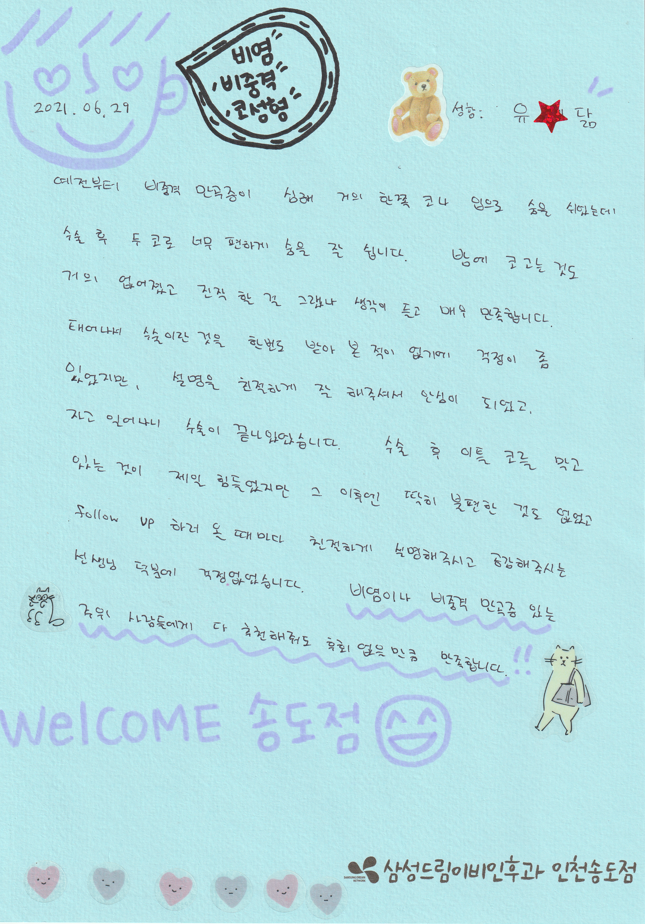 비염
비중격
코성형
2021. 06. 29
성함: 유 담
예전부터 비중격 만곡증이 심해 거의 한쪽 코나 입으로 숨을 쉬었는데
수술 후 두 코로 너무 편하게 숨을 잘 쉽니다. 밤에 코고는 것도
거의 없어졌고 진작 할 걸 그랬나 생각이 들고 매우 만족합니다.
태어나서 수술이란 것을 한번도 받아 본 적이 없기에 걱정이 좀
있었지만, 설명을 친절하게 잘 해주셔서 안심이 되었고,
자고 일어나니 수술이 끝나있었습니다. 수술 후 이틀 코를 막고
있는 것이 제일 힘들었지만 그 이후엔 딱히 불편한 것도 없었고
follow up 하러 올 때마다 친절하게 설명해주시고 공감해주시는
선생님 덕분에 걱정없었습니다. 비염이나 비중격 만곡증 있는
주위 사람들에게 다 추천해줘도 후회 없을만큼 만족합니다.!!
WelCOME 송도점
삼성드림이비인후과 인천송도점